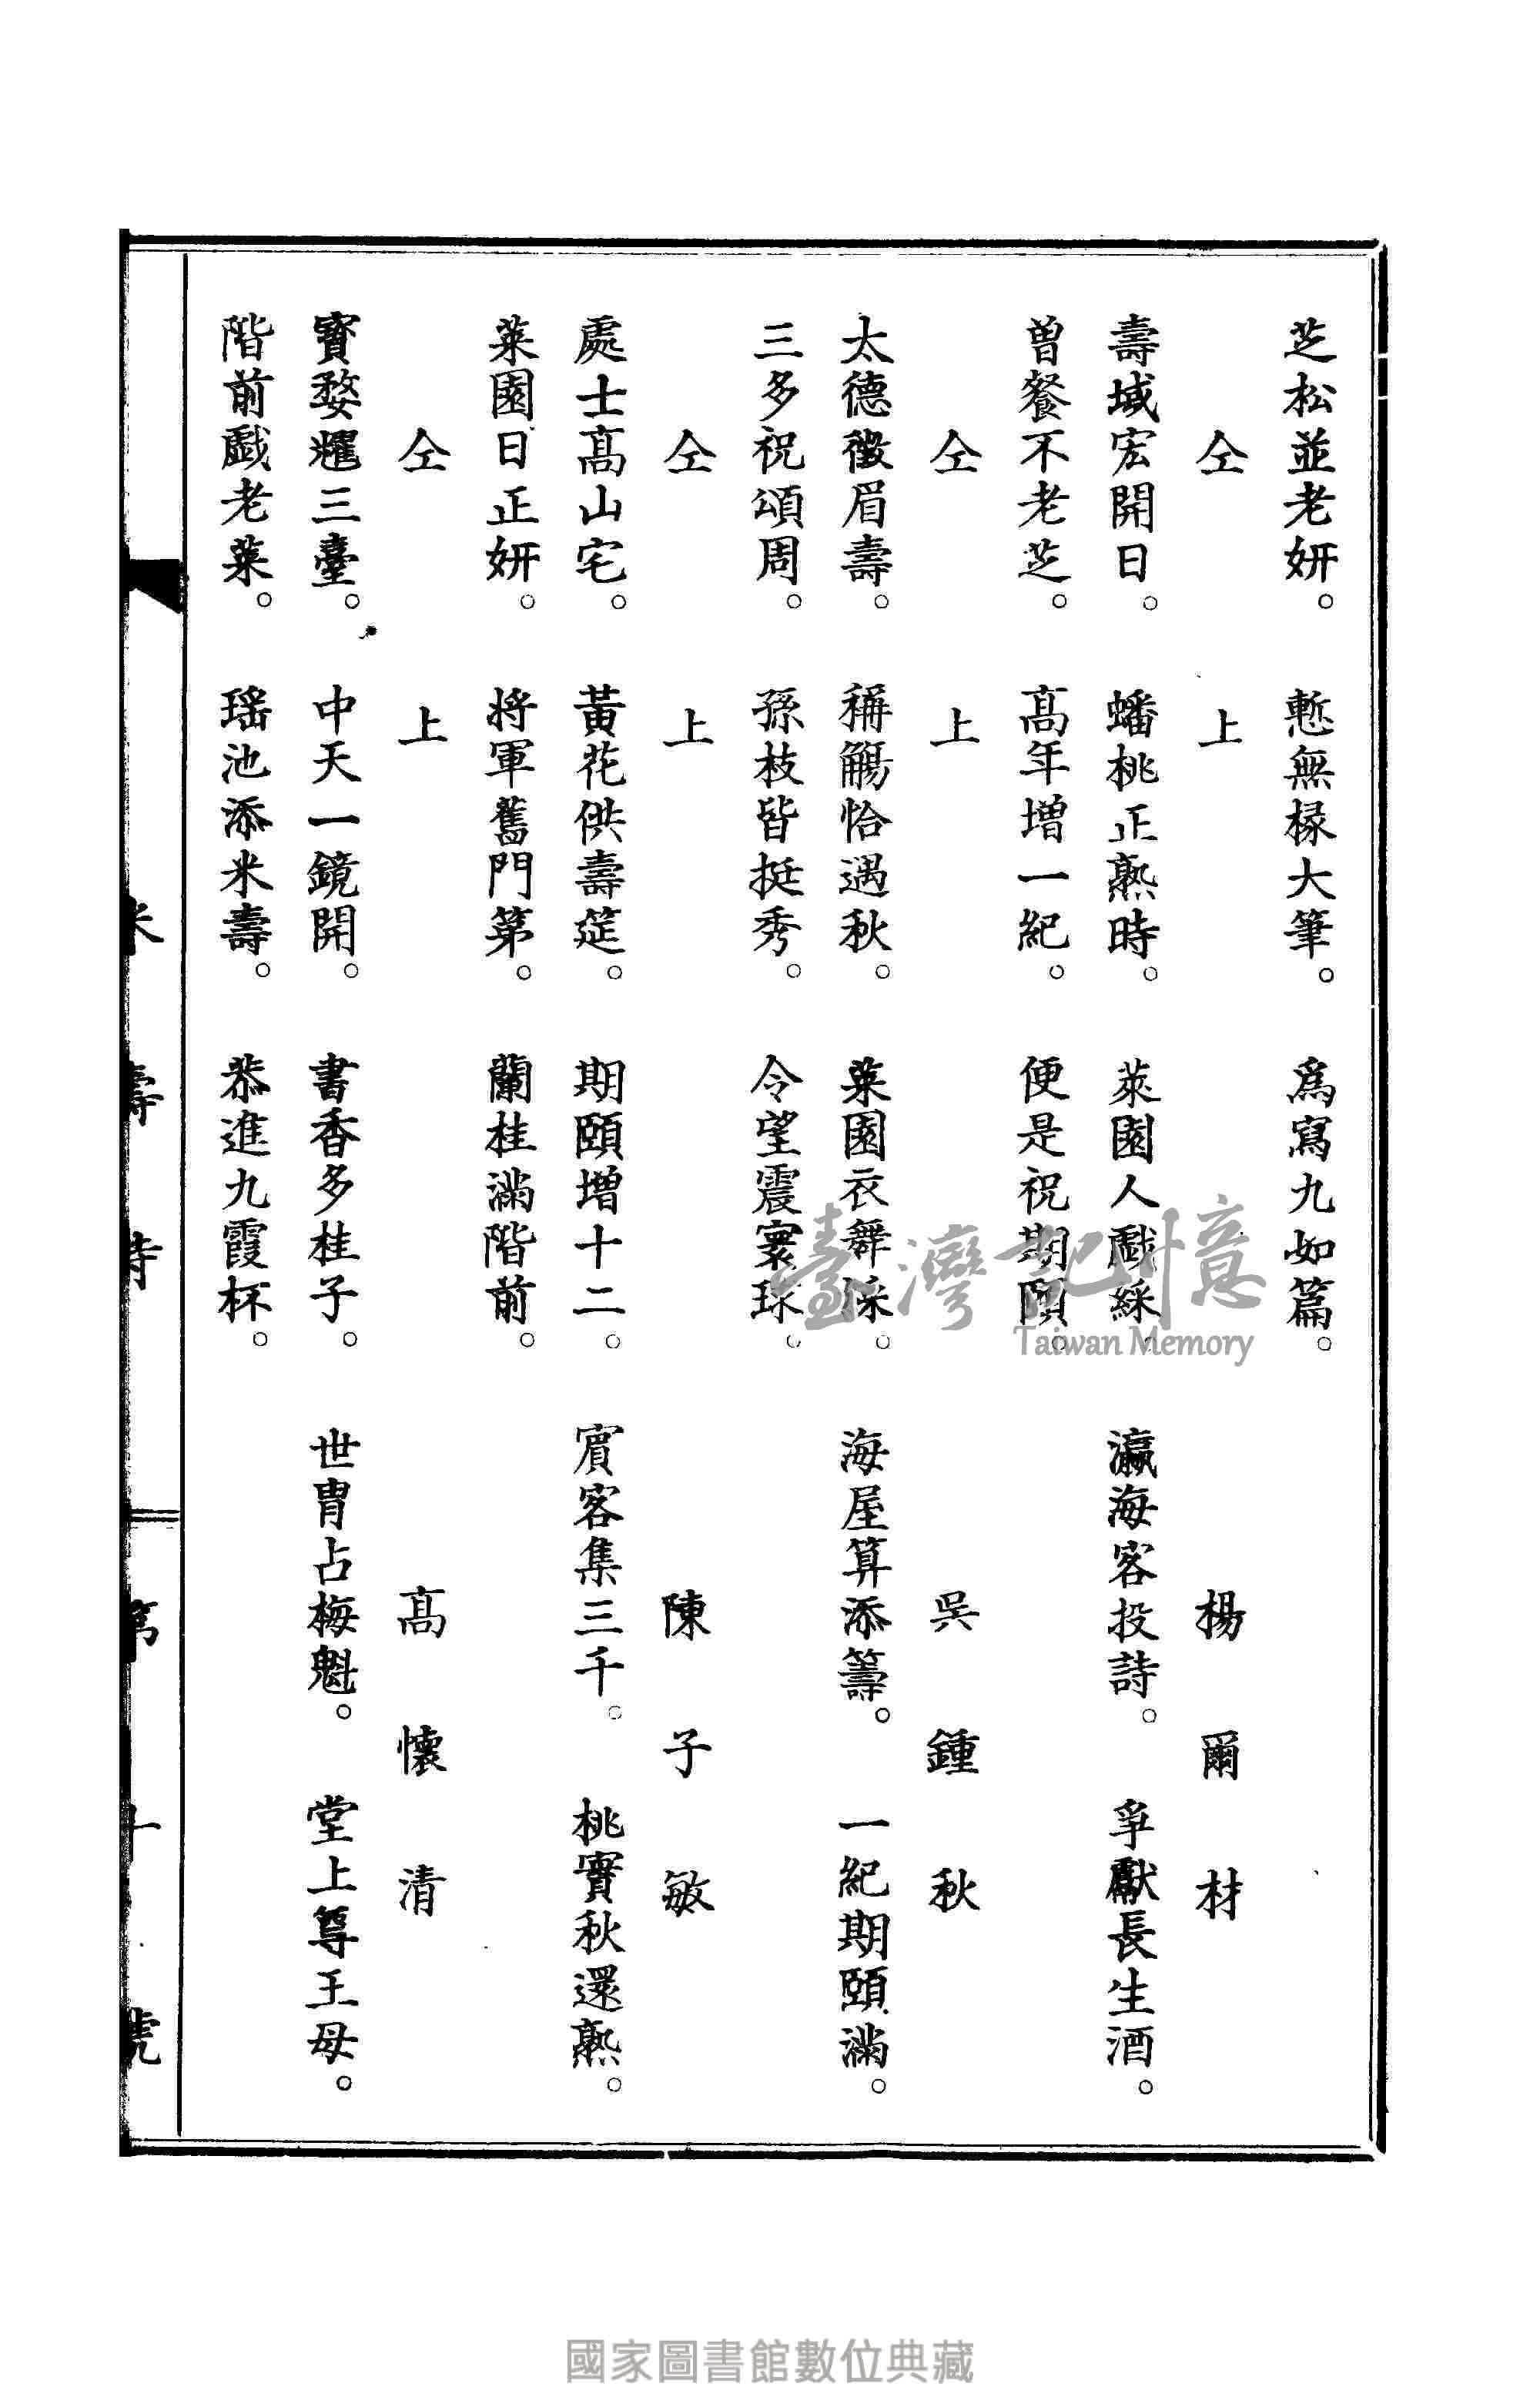 芝松並老妍。慙無椽大筆。爲寫九如篇。
仝上　楊爾材
壽域宏開日。蟠桃正熟時。萊園人戲綵。瀛海客投詩。爭獻長生酒。
曾餐不老芝。高年增一紀。便是祝期頤。
仝上　吳鍾秋
太德徵眉壽。稱觴恰遇秋。萊園衣舞綵。海屋算添籌。一紀期頤滿。
三多祝頌周。孫枝皆挺秀。令望震寰球。
仝上　陳子敏
處士高山宅。黃花供壽筵。期頤增十二。賓客集三千。桃實秋還熟。
萊園日正妍。將軍舊門第。蘭桂滿階前。
仝上　高懷清
寶婺耀三臺。中天一鏡開。書香多桂子。世胄占梅魁。堂上尊王母。
階前戲老萊。瑤池添米壽。恭進九霞杯。
米壽詩　第　十號
臺灣記憶
Taiwan Memory
國家圖書館數位典藏